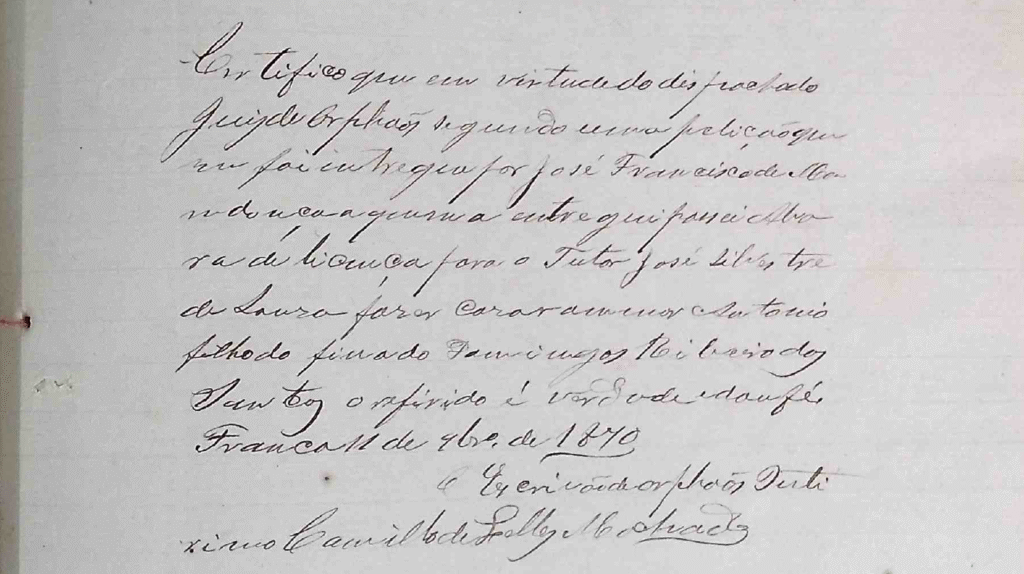 Certifico que em virtude do despacho do
Juiz de Orphaõs segundo uma petiçaõ que
me foi intregua por José Francisco de Me
ndonça a quem a entregui passei Alva
rá de licença para o Tutor José Silvestre
de Souza fazer cazar a menor Antonio
filho do finado Domingos Ribeiro dos
Santos o referido é verdade e dou fé
Franca 11 de 9bro. de 1870
O Escrivaõ de orphaõs Justi
niano Camillo de Lellis Machado